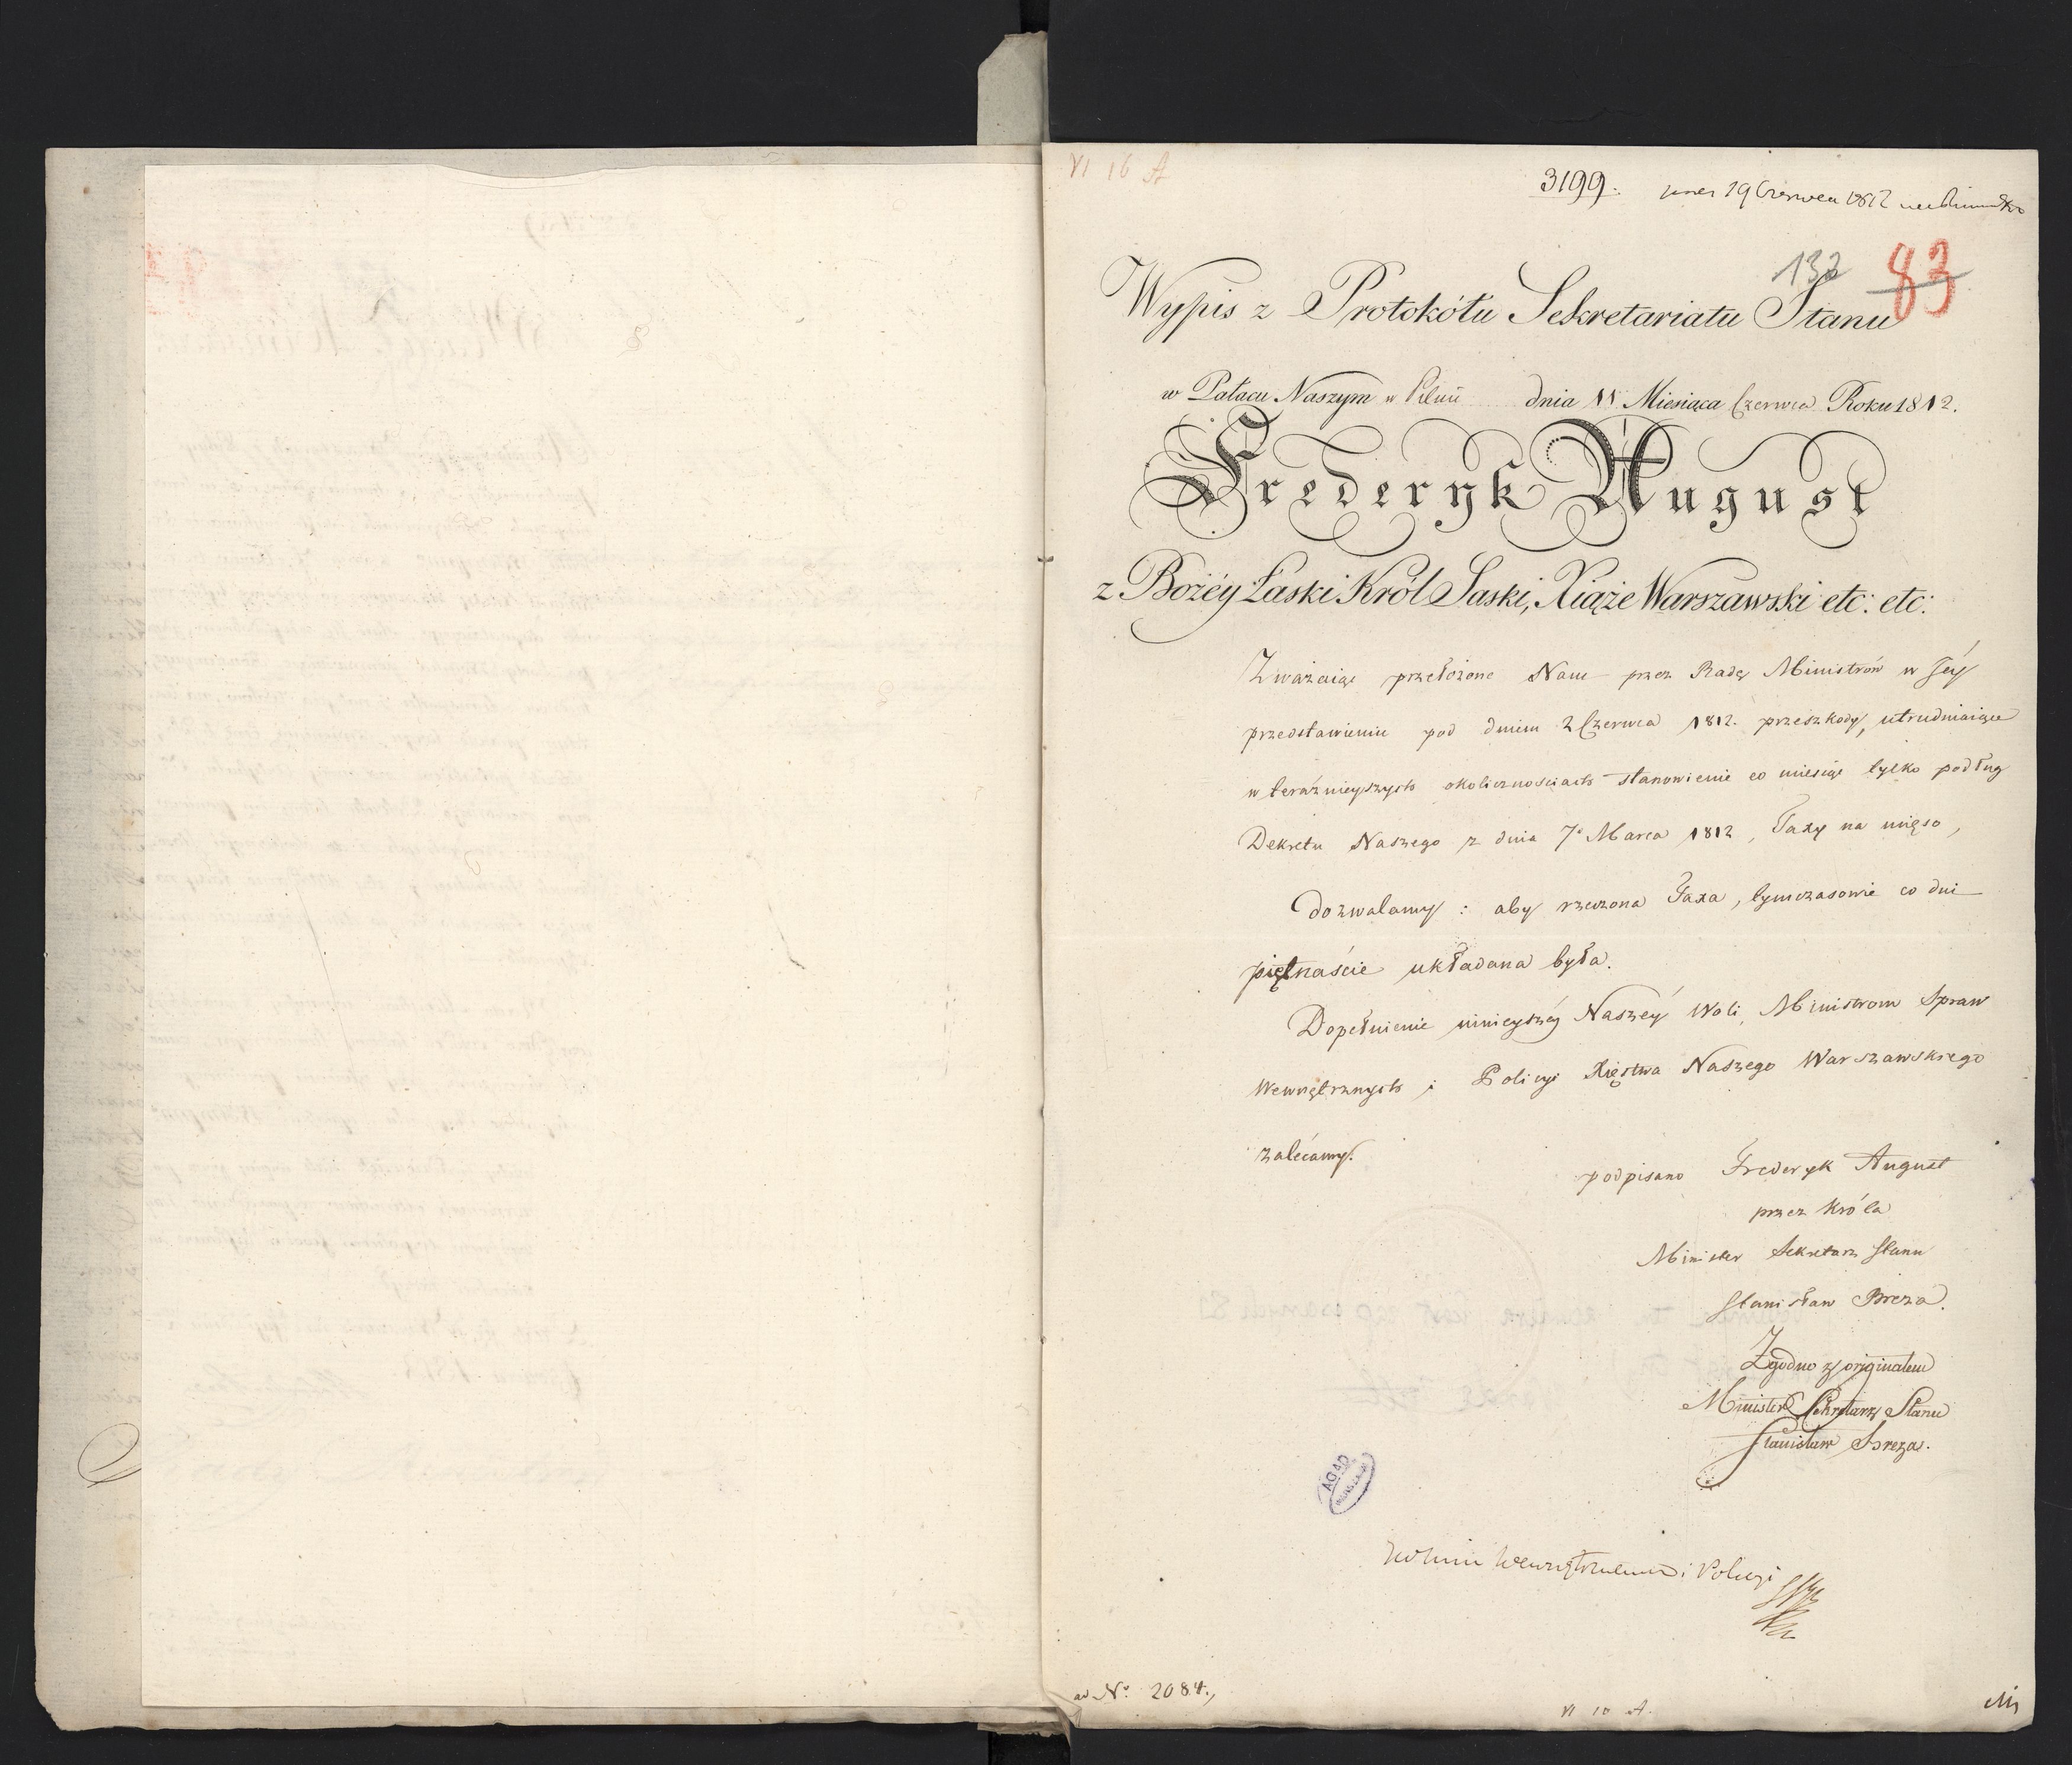 VI 16 A
3199. 19 Czerwca 1812
132 83
Wypis z Protokółu Sekretariatu Stanu
w Pałacu Naszym w Pilnit dnia 11 Miesiąca Czerwca Roku 1812.
Frederyk August
z Bożéy Łaski Król Saski, Xiąże Warszawski etc: etc:
Zważaiąc przełożone Nam przez Radę Ministrów w Jéy
przedstawieniu pod dniem 2 Czerwca 1812. przeszkody, utrudniaiące
w teraźnieyszych okolicznościach stanowienie co miesiąc tylko podług
Dekretu Naszego z dnia 7º Marca 1812, Taxy na mięso,
Dozwalamy: aby rzeczona Taxa, tymczasowie co dni
piętnaście układana była.
Dopełnienie ninieyszéy Naszéy Woli, Ministrom Spraw
Wewnętrznych i Policyi Xięstwa Naszego Warszawskiego
zalécamy.
podpisano Frederyk August
przez Króla
Minister Sekretarz Stanu
Stanisław Breza.
Zgodno z originałem
Minister Sekretarz Stanu
Stanisław Breza.
AGAD
Wewnętrznemu i Policyi
ad Nº 2084.,
VI 10 A.